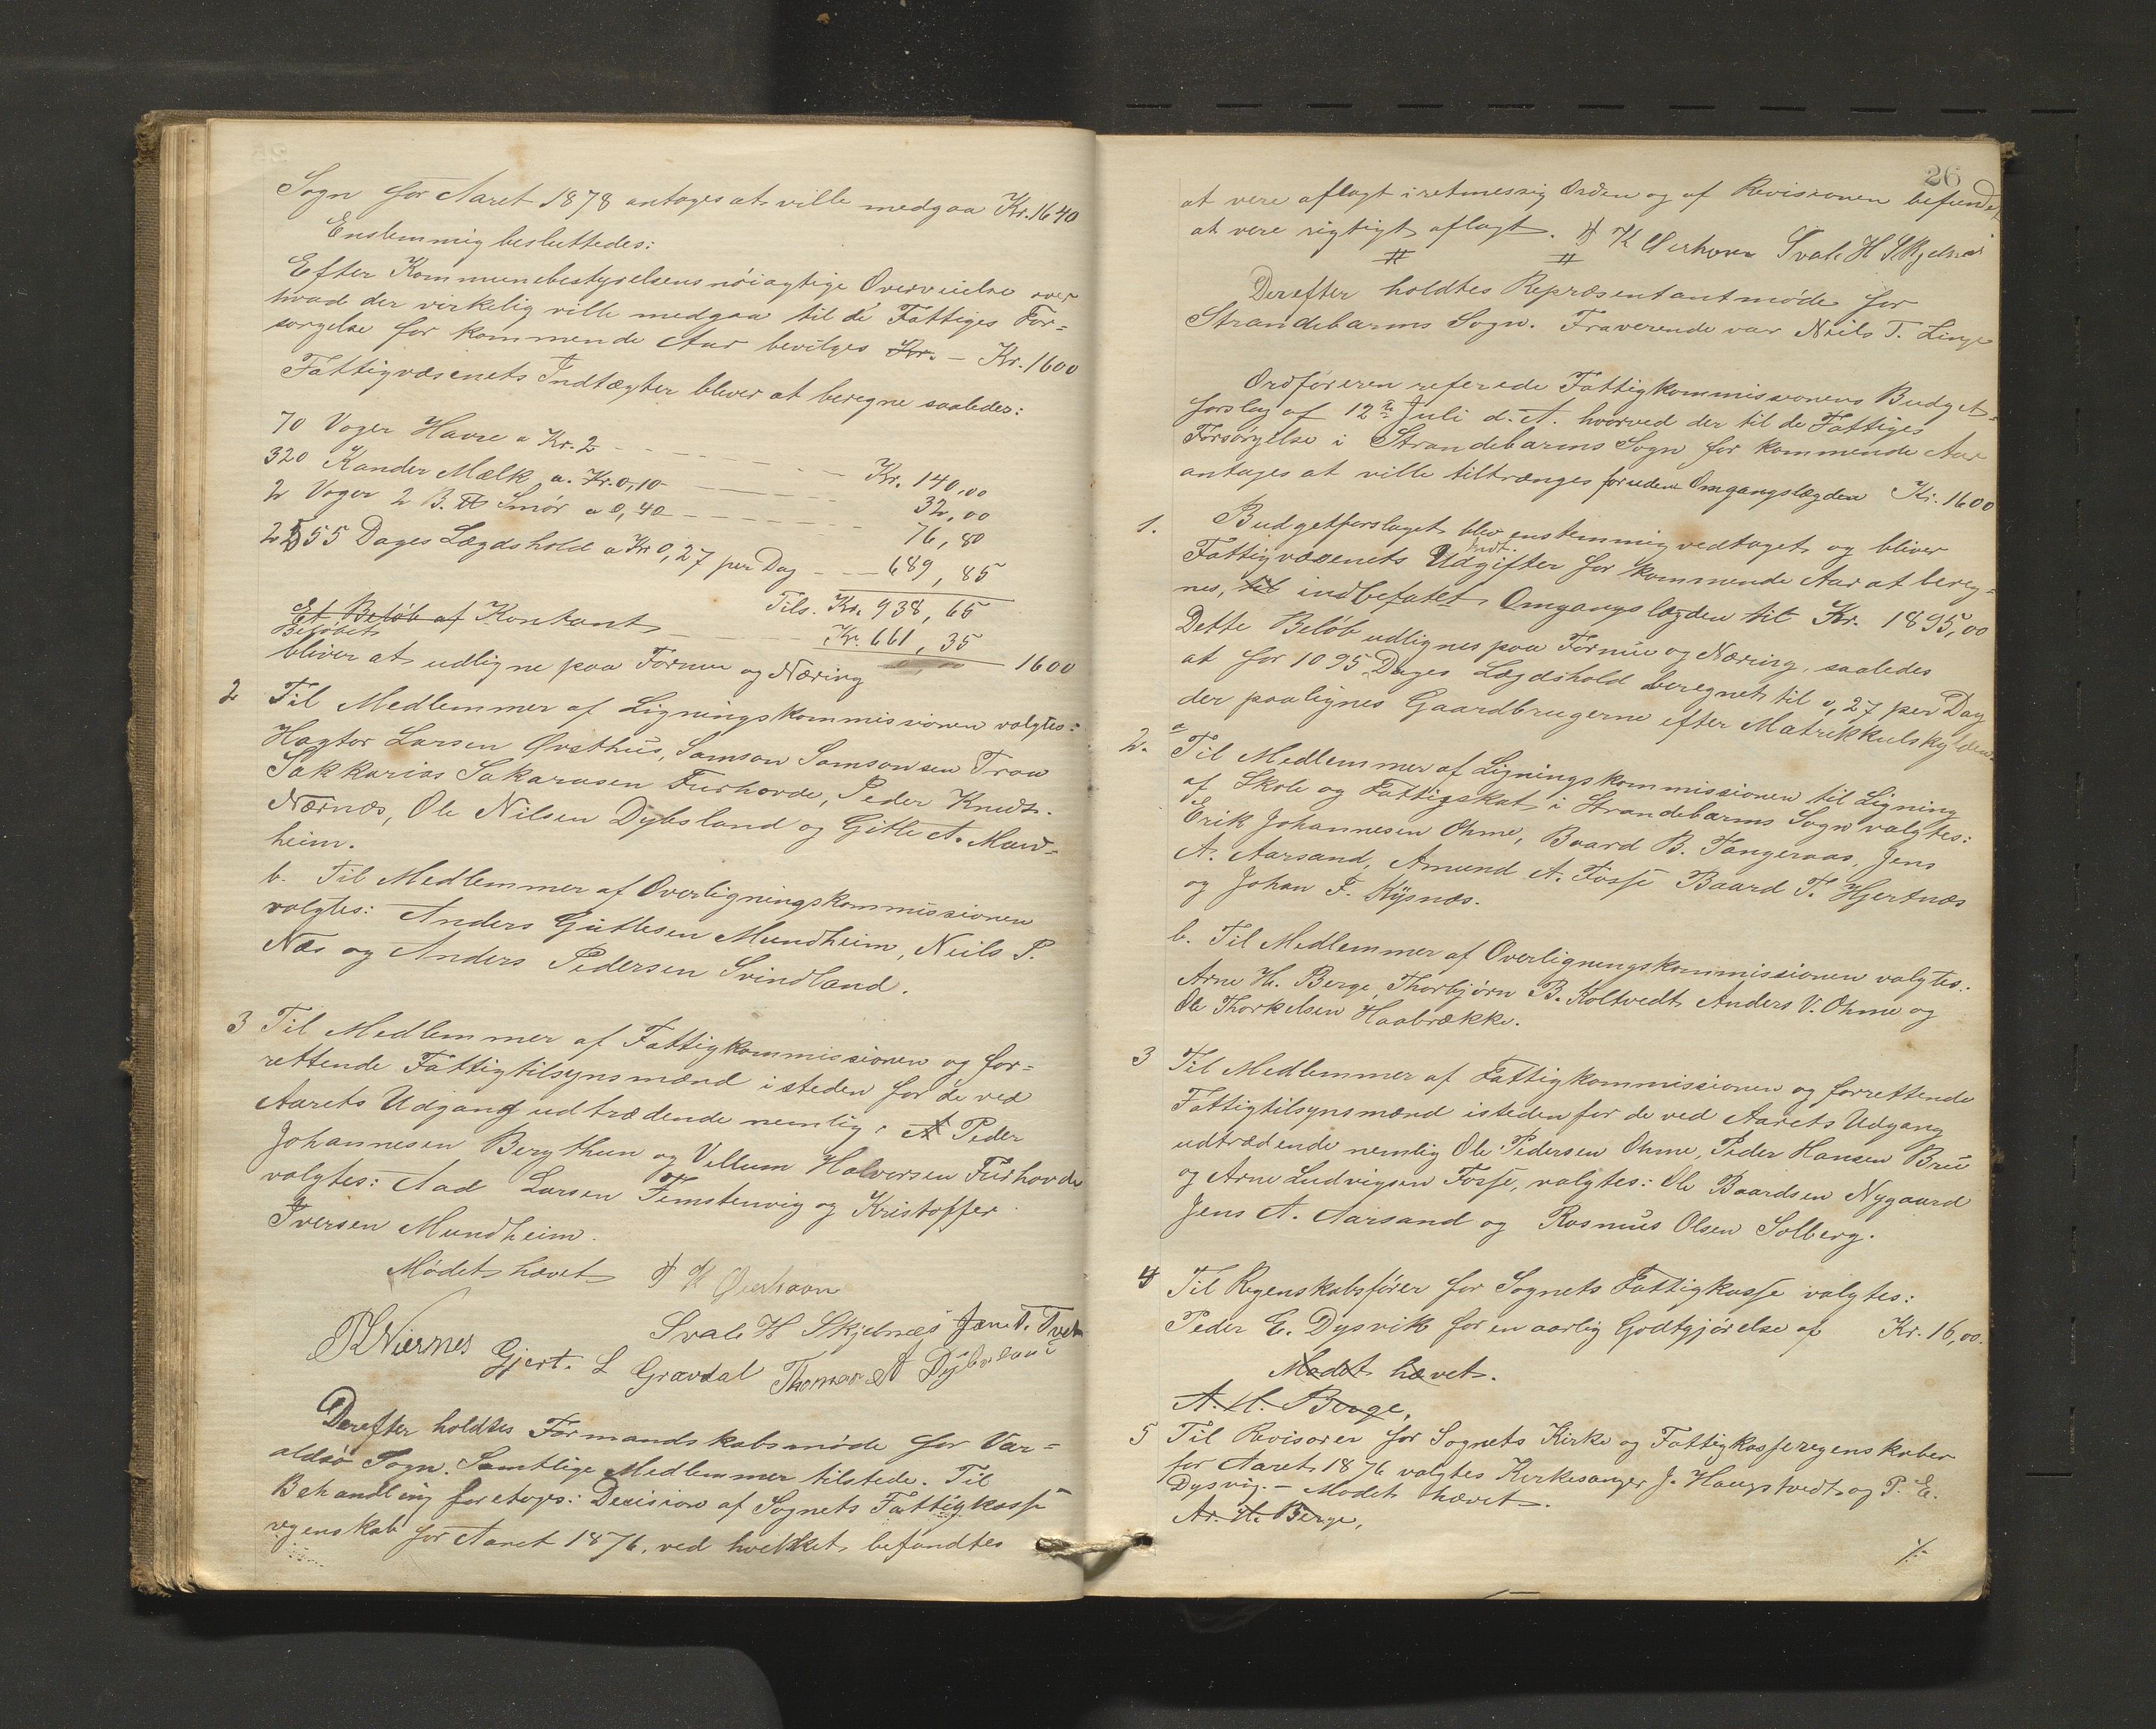 Sogn for Aaret 1878 antages at ville medgaa Kr. 1640
Enstemmig besluttedes:
Efter Kommunebestyrelsens nöiagtige Overveielse over
hvad der virkelig ville medgaa til de Fattiges For=
sørgelse for kommende Aar bevilges Kr. - Kr. 1600
Fattigvæsenets Indtægter bliver at beregne saaledes:
70 Voger Havre a Kr. 2 - Kr. 140,00
320 Kander Mælk a. Kr. 0,10 - 32,00
2 Voger 2 B. ℔ Smör a 0,40 - 76,80
2555 Dages Lægdshold a Kr 0,27 per Dag - 689,85
Tils. Kr. 938,65
Et Beløb af Kontant - Kr. 661,35
Beløbet
bliver at udligne paa Formue og Næring 1600
2 Til Medlemmer af Ligningskommissionen valgtes:
Hagtor Larsen Øvsthus, Samson Samsonsen Traa
Sakkarias Sakarasen Furhovde, Peder Knudts.
Nærnæs, Ole Nilsen Dybsland og Gitle A. Mund=
heim.
b. Til Medlemmer af Overligningskommissionen
valgtes: Anders Guttlesen Mundheim, Neils P.
Næs og Anders Pedersen Svindland.
3 Til Medlemmer af Fattigkommissionen og for=
rettende Fattigtilsynsmænd isteden for de ved
Aarets Udgang udtrædende nemlig: A Peder
Johannesen Bergthun og Villum Halvorsen Furhovde
valgtes: Aad Larsen Femstenvig og Kristoffer
Iversen Mundheim.
Mödet hævet H Øverhavn
Svale H Skjelnæs Jan T. Tvet
PKNernes Gjert. L Gravdal Thomas A Dÿbsland
Derefter holdtes Formandskabsmöde for Var=
aldsö Sogn. Samtlige Medlemmer tilstede. Til
Behandling foretoges: Decision af Sognets Fattigkasse
regenskab for Aaret 1876, ved hvilket befandtes
26
at vere aflagt i retmessig Orden og af Revisionen befundet
at vere rigtigt aflagt. H Øverhavn Svale H Skjelnæs
Derefter holdtes Repræsentantmöde for
Strandebarms Sogn. Fraverende var Neils T. Linge
Ordföreren refererede Fattigkommissionens Budget=
forslag af 12te Juli d. A. hvorved der til de Fattiges
Forsörgelse i Strandebarms Sogn for kommende Aar
antages at ville tiltrænges foruden Omgangslægden Kr. 1600
1. Budgetforslaget blev enstemmig vedtaget og bliver
Indt.
Fattigvæsenets Udgifter for kommende Aar at bereg=
nes, til indbefatet Omgangslægden til Kr. 1895,00
Dette Belöb udlignes paa Formue og Næring, saaledes
at for 1095 Dages Lægdshold beregnet til 0,27 per Dag
der paalignes Gaardbrugerne efter Matrikkulskylden.
2. a Til Medlemmer af Ligningskommissionen til Ligning
af Skole og Fattigskat i Strandebarms Sogn valgtes:
Erik Johannesen Ohme, Baard B. Tangeraas, Jens
A. Aarsand, Amund A. Fosse Baard T. Hjertnæs
og Johan J. Kÿsnæs.
b. Til Medlemmer af Overligningskommissionen valgtes:
Arne H. Berge, Thorbjörn B. Koltvedt Anders V. Ohme og
Ole Thorkelsen Haabrække.
3 Til Medlemmer af Fattigkommissionen og forrettende
Fattigtilsynsmænd isteden for de ved Aarets Udgang
udtrædende nemlig Ole Pedersen Ohme, Peder Hansen Bru
og Arne Ludvigsen Fosse, valgtes: Ole Baardsen Nygaard
Jens A. Aarsand og Rasmus Olsen Solberg.
4 Til Regenskabsfører for Sognets Fattigkasse valgtes:
Peder E. Dysvik for en aarlig Godtgjörelse af Kr. 16,00.
Mødet hævet.
A. H. Berge,
5 Til Revisorer for Sognets Kirke og Fattigkasseregenskaber
for Aaret 1876 valgtes Kirkesanger J. Haugstvedt og P. E.
Dysvig. - Modet hævet.
Ar. H. Berge,